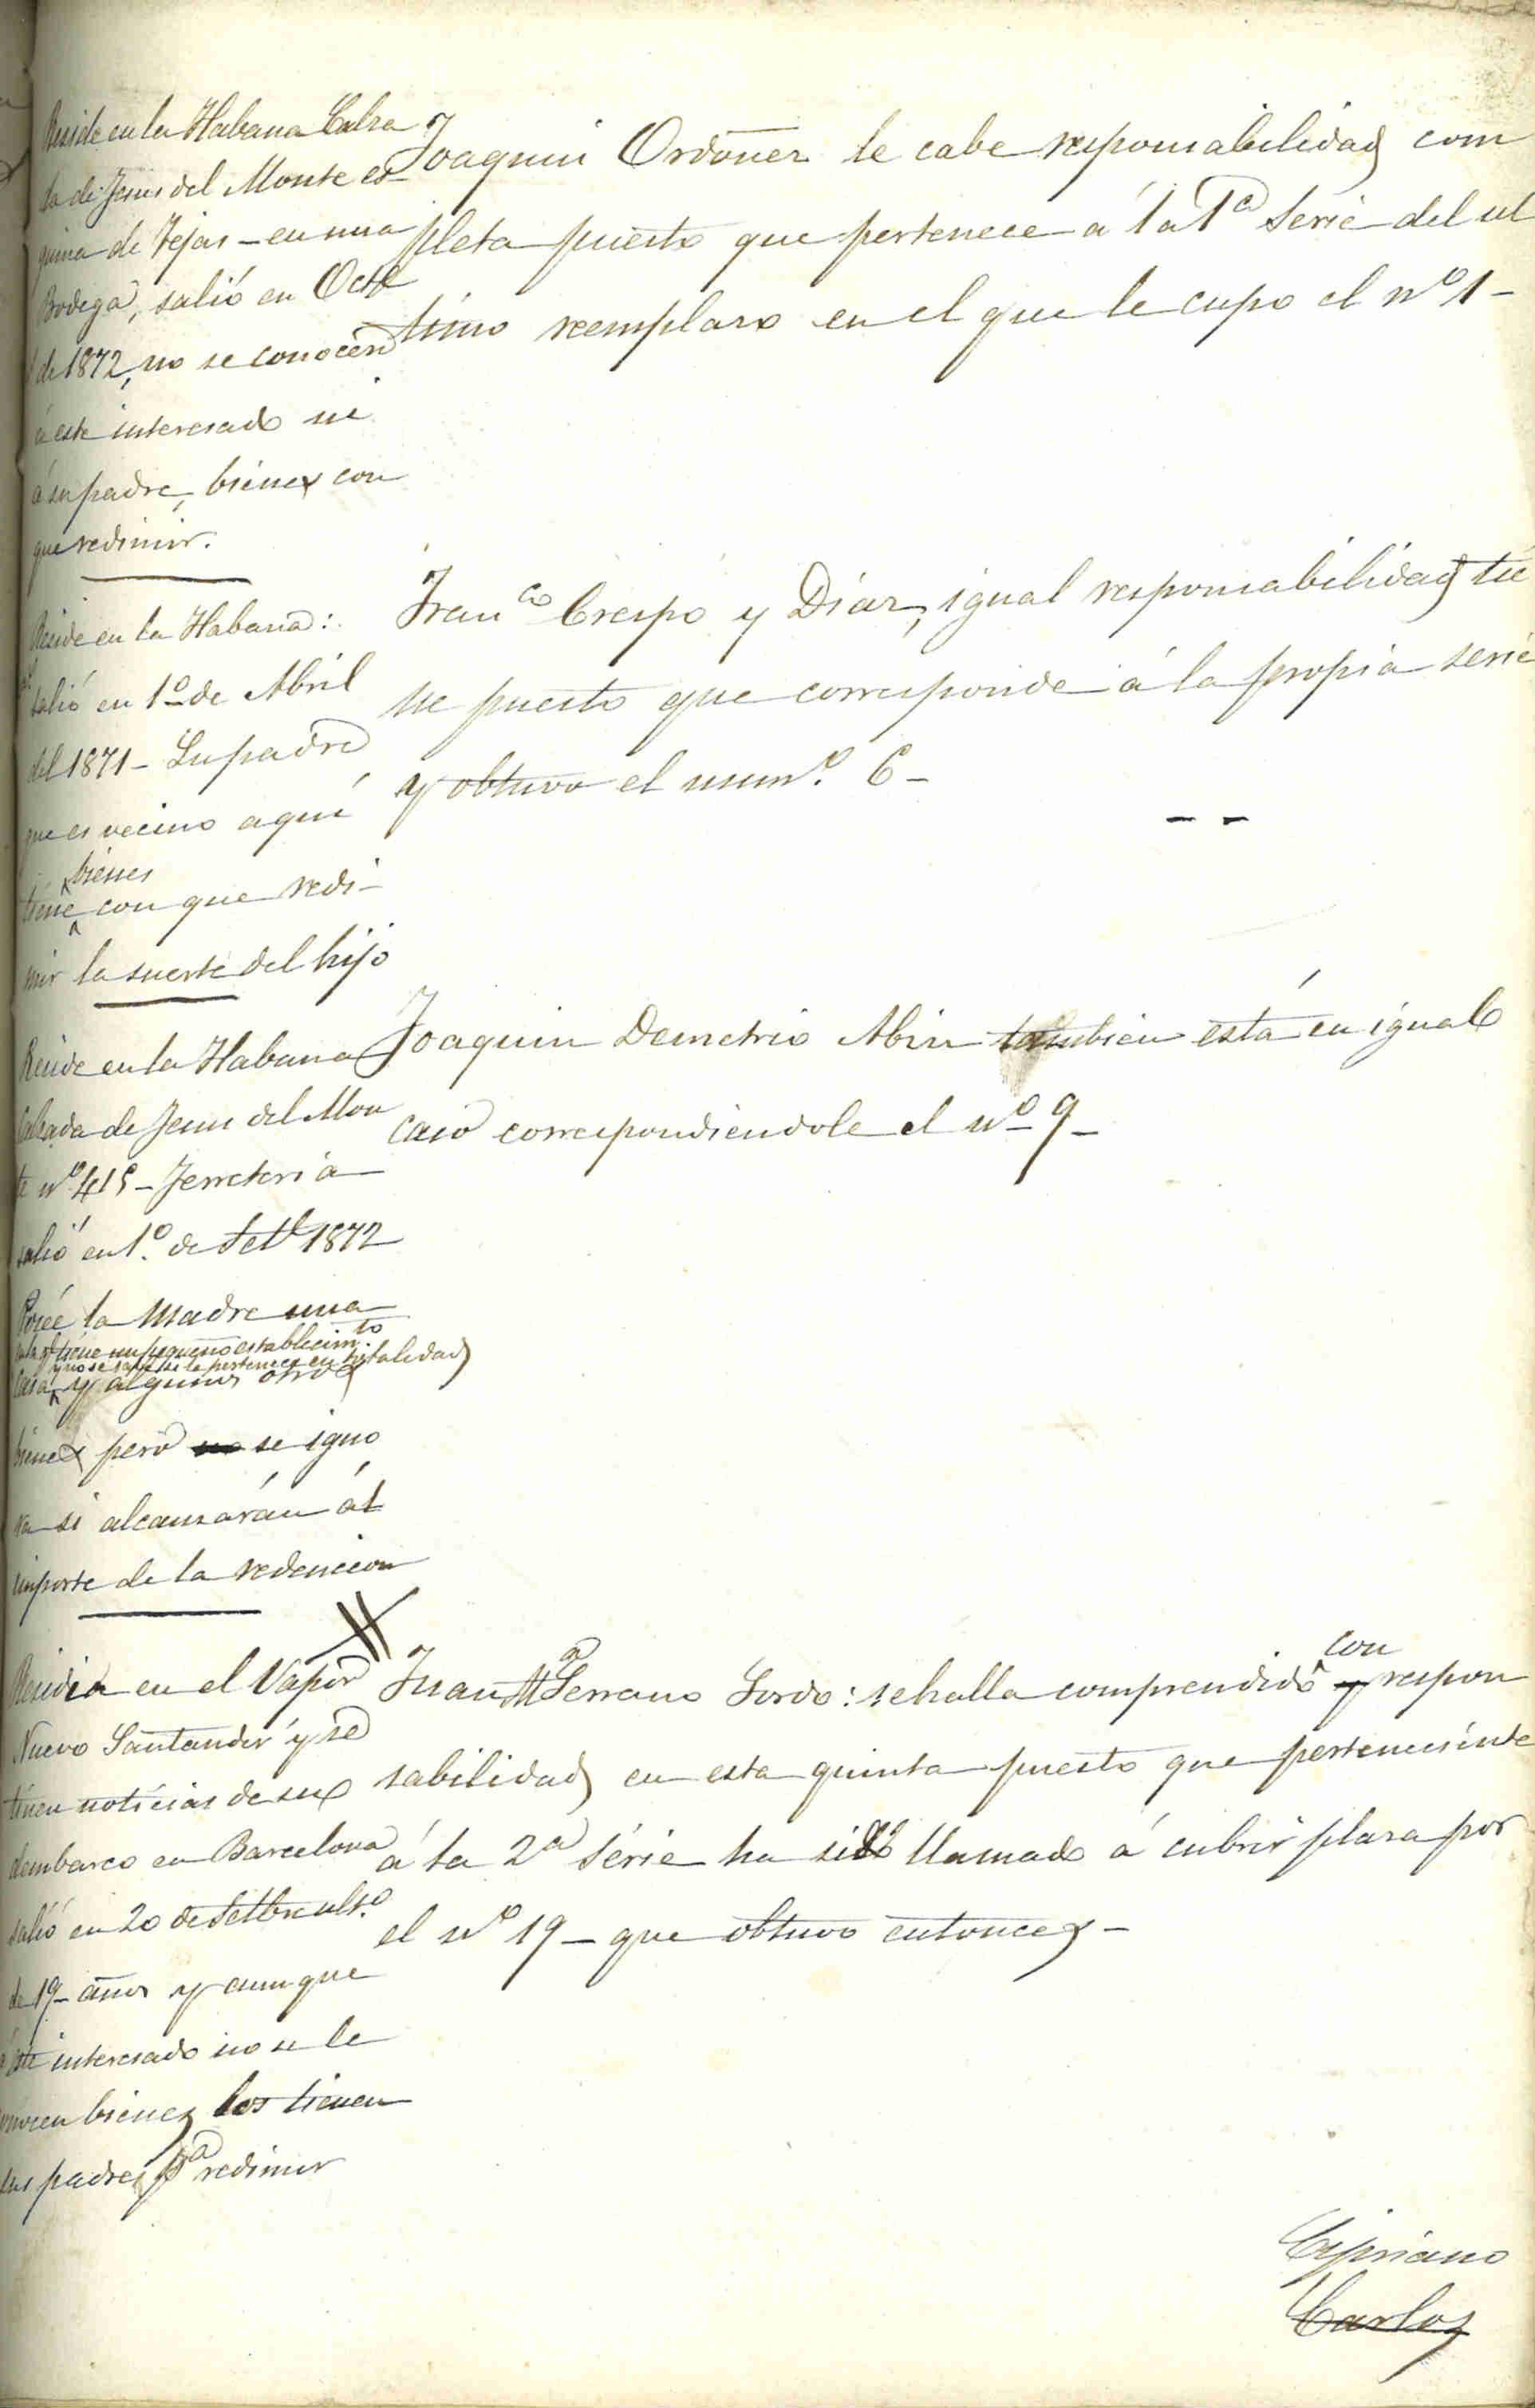 Reside en la Habana Calza
da de Jesus del Monte es
quina de Tejas - en una
Bodega, salió en Octe
de 1872, no se conocen
á este interesado ni
á su padre, bienes con
que redimir.
Joaquin Ordoñez le cabe responsabilidad com
pleta puesto que pertenece á la 1ª Serie del ul
timo reemplazo en el que le cupo el nº 1 -
Reside en la Habana:
salió en 1º de Abril
del 1871 - Su padre
que es vecino aquí
bienes
tiene con que redi-
mir la suerte del hijo
Franco Crespo y Diaz, igual responsabilidad tie
ne puesto que corresponde á la propia serie
y obtuvo el numº. 6 -
Reside en la Habana
Calzada de Jesus del Mon
te nº 415 - Ferreteria
salió en 1º. de Setbe 1872
Poseé la Madre una
tiene un pequeño establecimto.
y no se sabe si le pertenece en totalidad
casa y algunos otros
bienes pero no se igno
ra si alcanzarán al
importe de la redencion
Joaquin Demetrio Abin tambien está en igual
caso correspondiendole el nº 9 -
Residia en el Vapor
Nuevo Santander y se
tienen noticias de su
desembarco en Barcelona
salió en 20 de Setbre ulto.
de 19 años y aunque
á este interesado no se le
conocen bienes los tienen
sus padres pª redimir
con
Juan Mª Serrano Sordo: se halla comprendido y respon
sabilidad en esta quinta puesto que perteneciente
á la 2ª série ha sido llamado á cubrir plaza por
el nº 19 - que obtuvo entonces -
Cipriano
Carlos